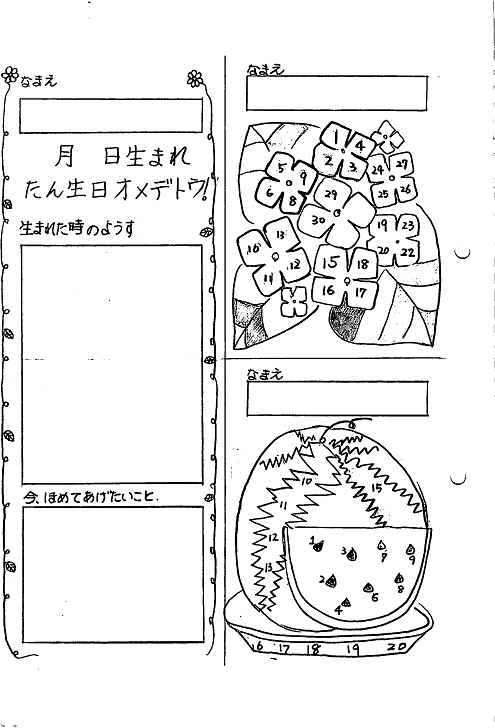 なまえ
月 日生まれ
たん生日オメデトウ!
生まれた時のようす
今、ほめてあげたいこと.
なまえ
1 4
2 3
5 9
6 8
24 27
25 26
29
30
19 23
20 22
10 13
11 12
15 18
16 17
なまえ
10
11
12
13
15
1 3 7 9
2 6 8
4
16 17 18 19 20